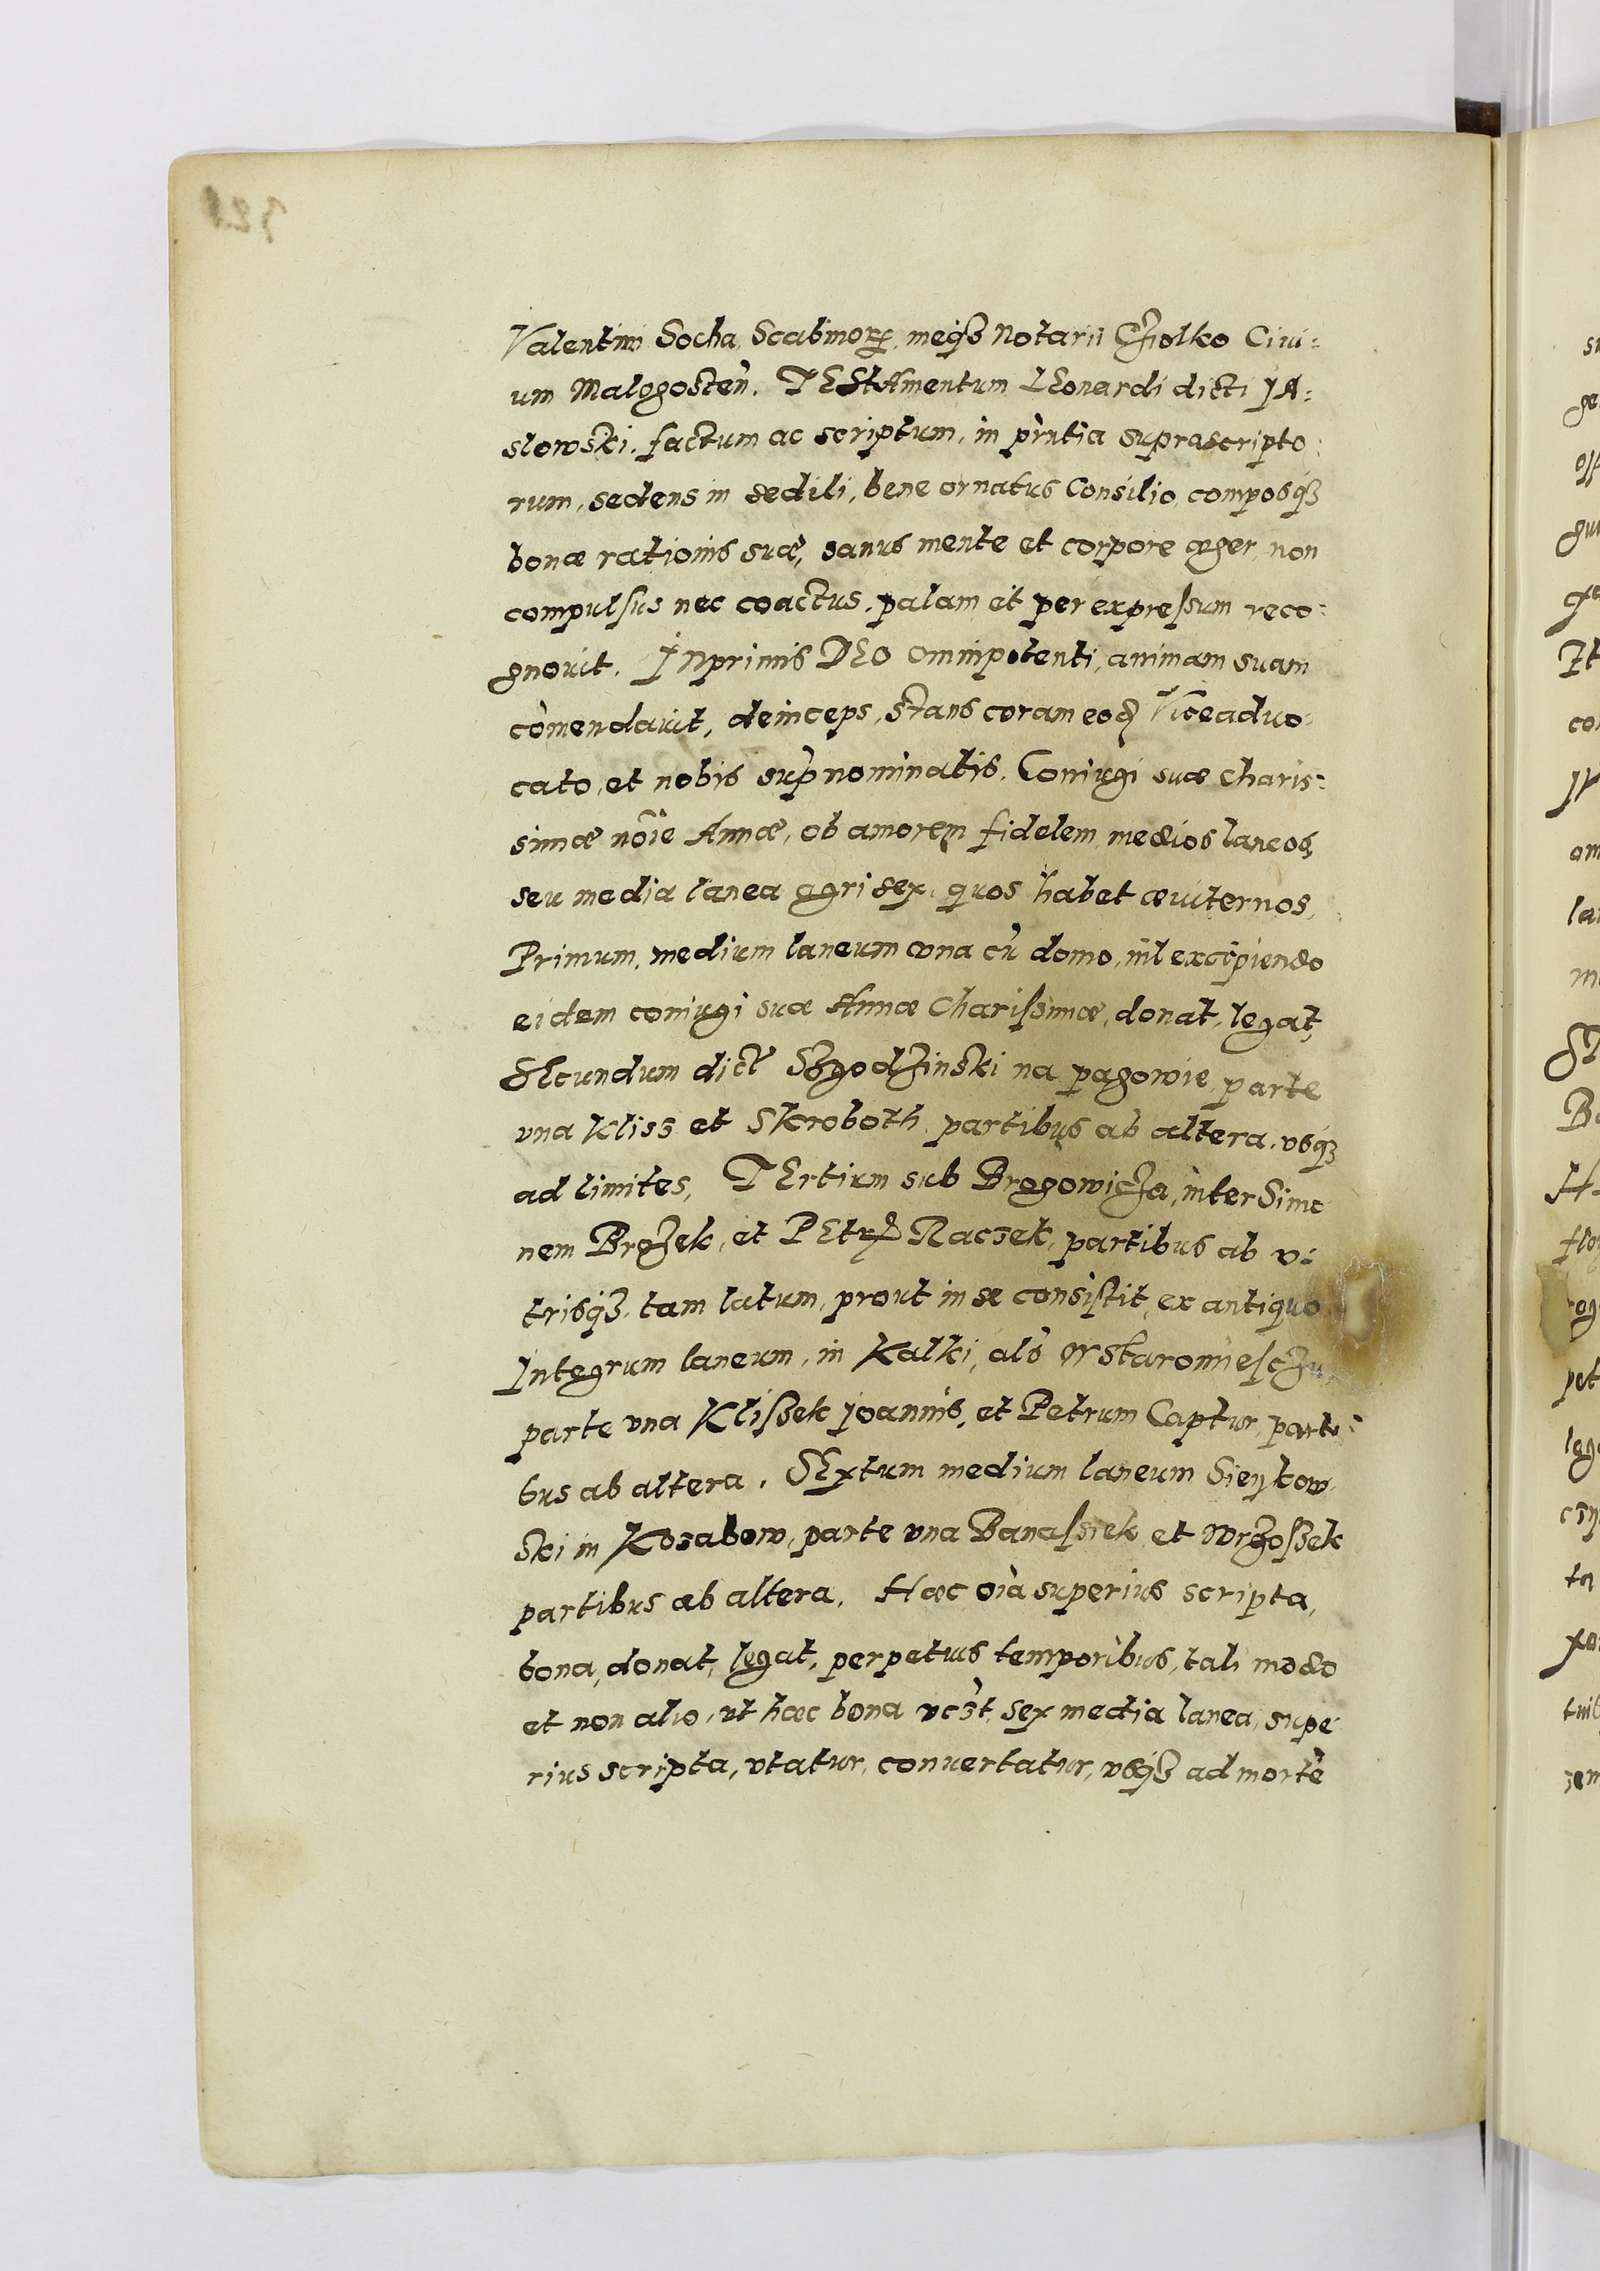 321
Valentini Socha, Scabinorꝝ, meqꝫ Notarii Cziolko Civi:
um Malogosteñ. TEStAmentum LEonardi dicti JA:
slowski, factum ac scriptum, in pr̃ntia suprascripto:
rum, sedens in sedili, bene ornatus Consilio, composqꝫ
bonæ rationis suæ, sanus mente et corpore æger, non
compulsus nec coactus, palam et per expressum reco:
gnouit. INprimis DEO omnipotenti, animam suam
com̃endauit, deinceps, stans coram eod Viceaduo:
cato, et nobis sup̃nominatis, Coniugi suæ charis:
simæ nõie Annæ, ob amorem fidelem, medios laneos,
seu media lanea agri sex, quos habet æuiternos,
Primum, medium laneum vna cũ domo, nil excipiendo
eidem coniugi suæ Annæ Charissimæ, donat, legat,
SEcundum dict̃ Szgodzinski na pagowie, parte
vna Kliss et Skroboth, partibus ab altera, vsqꝫ
ad limites, TErtium sub Brogowicza, inter Simo
nem Brozek, et PEtrũ Raczek, partibus ab v:
trisqꝫ, tam latum, prout in se consistit, ex antiquo
Integrum laneum, in Kalki, als̃ W Staromiesczu,
parte vna Kliszek Joannis, et Petrum Captur, parti:
bus ab altera. SExtum medium laneum Sieykow
ski in Kozabow, parte vna Banassiek et Wrzoszek
partibus ab altera. Hæc oĩa superius scripta,
bona, donat, legat, perpetuis temporibus, tali modo
et non alio, vt hæc bona vczt, sex media lanea, supe
rius scripta, vtatur, conuertatur, vsqꝫ ad mortẽ